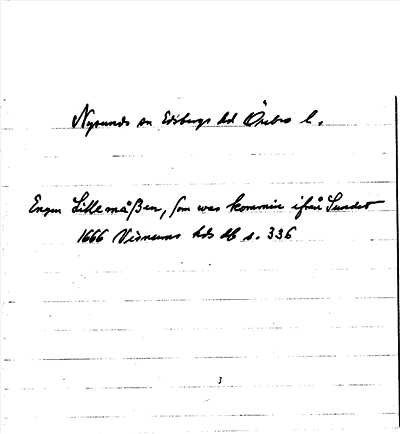 Nysunds sn Edsbergs hd Örebro l.
Engen Lillemåßen, som was kommin ifrå Sundet
1666 Visnums hds db s. 336
3